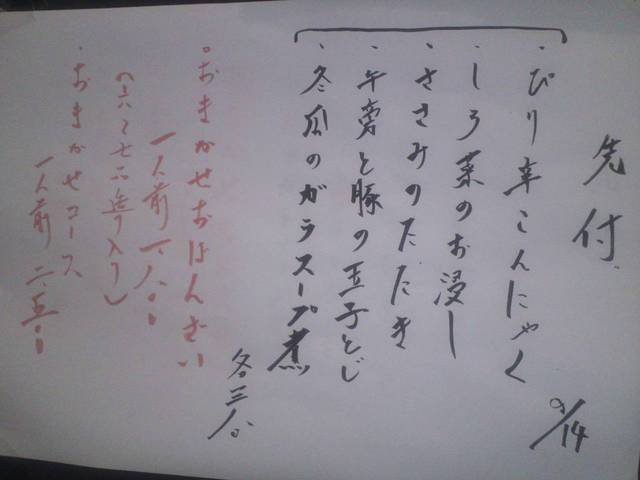 先付
9/14
・ぴり辛こんにゃく
・しろ菜のお浸し
・ささみのたたき
・午蒡と豚の玉子とじ
・冬瓜のガラスープ煮
各三八〇
・おまかせおばんざい
一人前 一八〇〇
(六〜七品造り入り)
・おまかせコース
一人前 二五〇〇